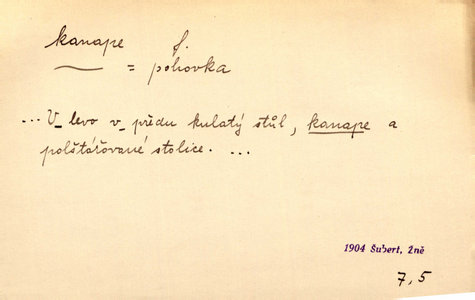 kanape f.
= pohovka
... V_ levo v_ předu kulatý stůl, kanape a
polštářované stolice. ...
1904 Šubert, Žně
7,5